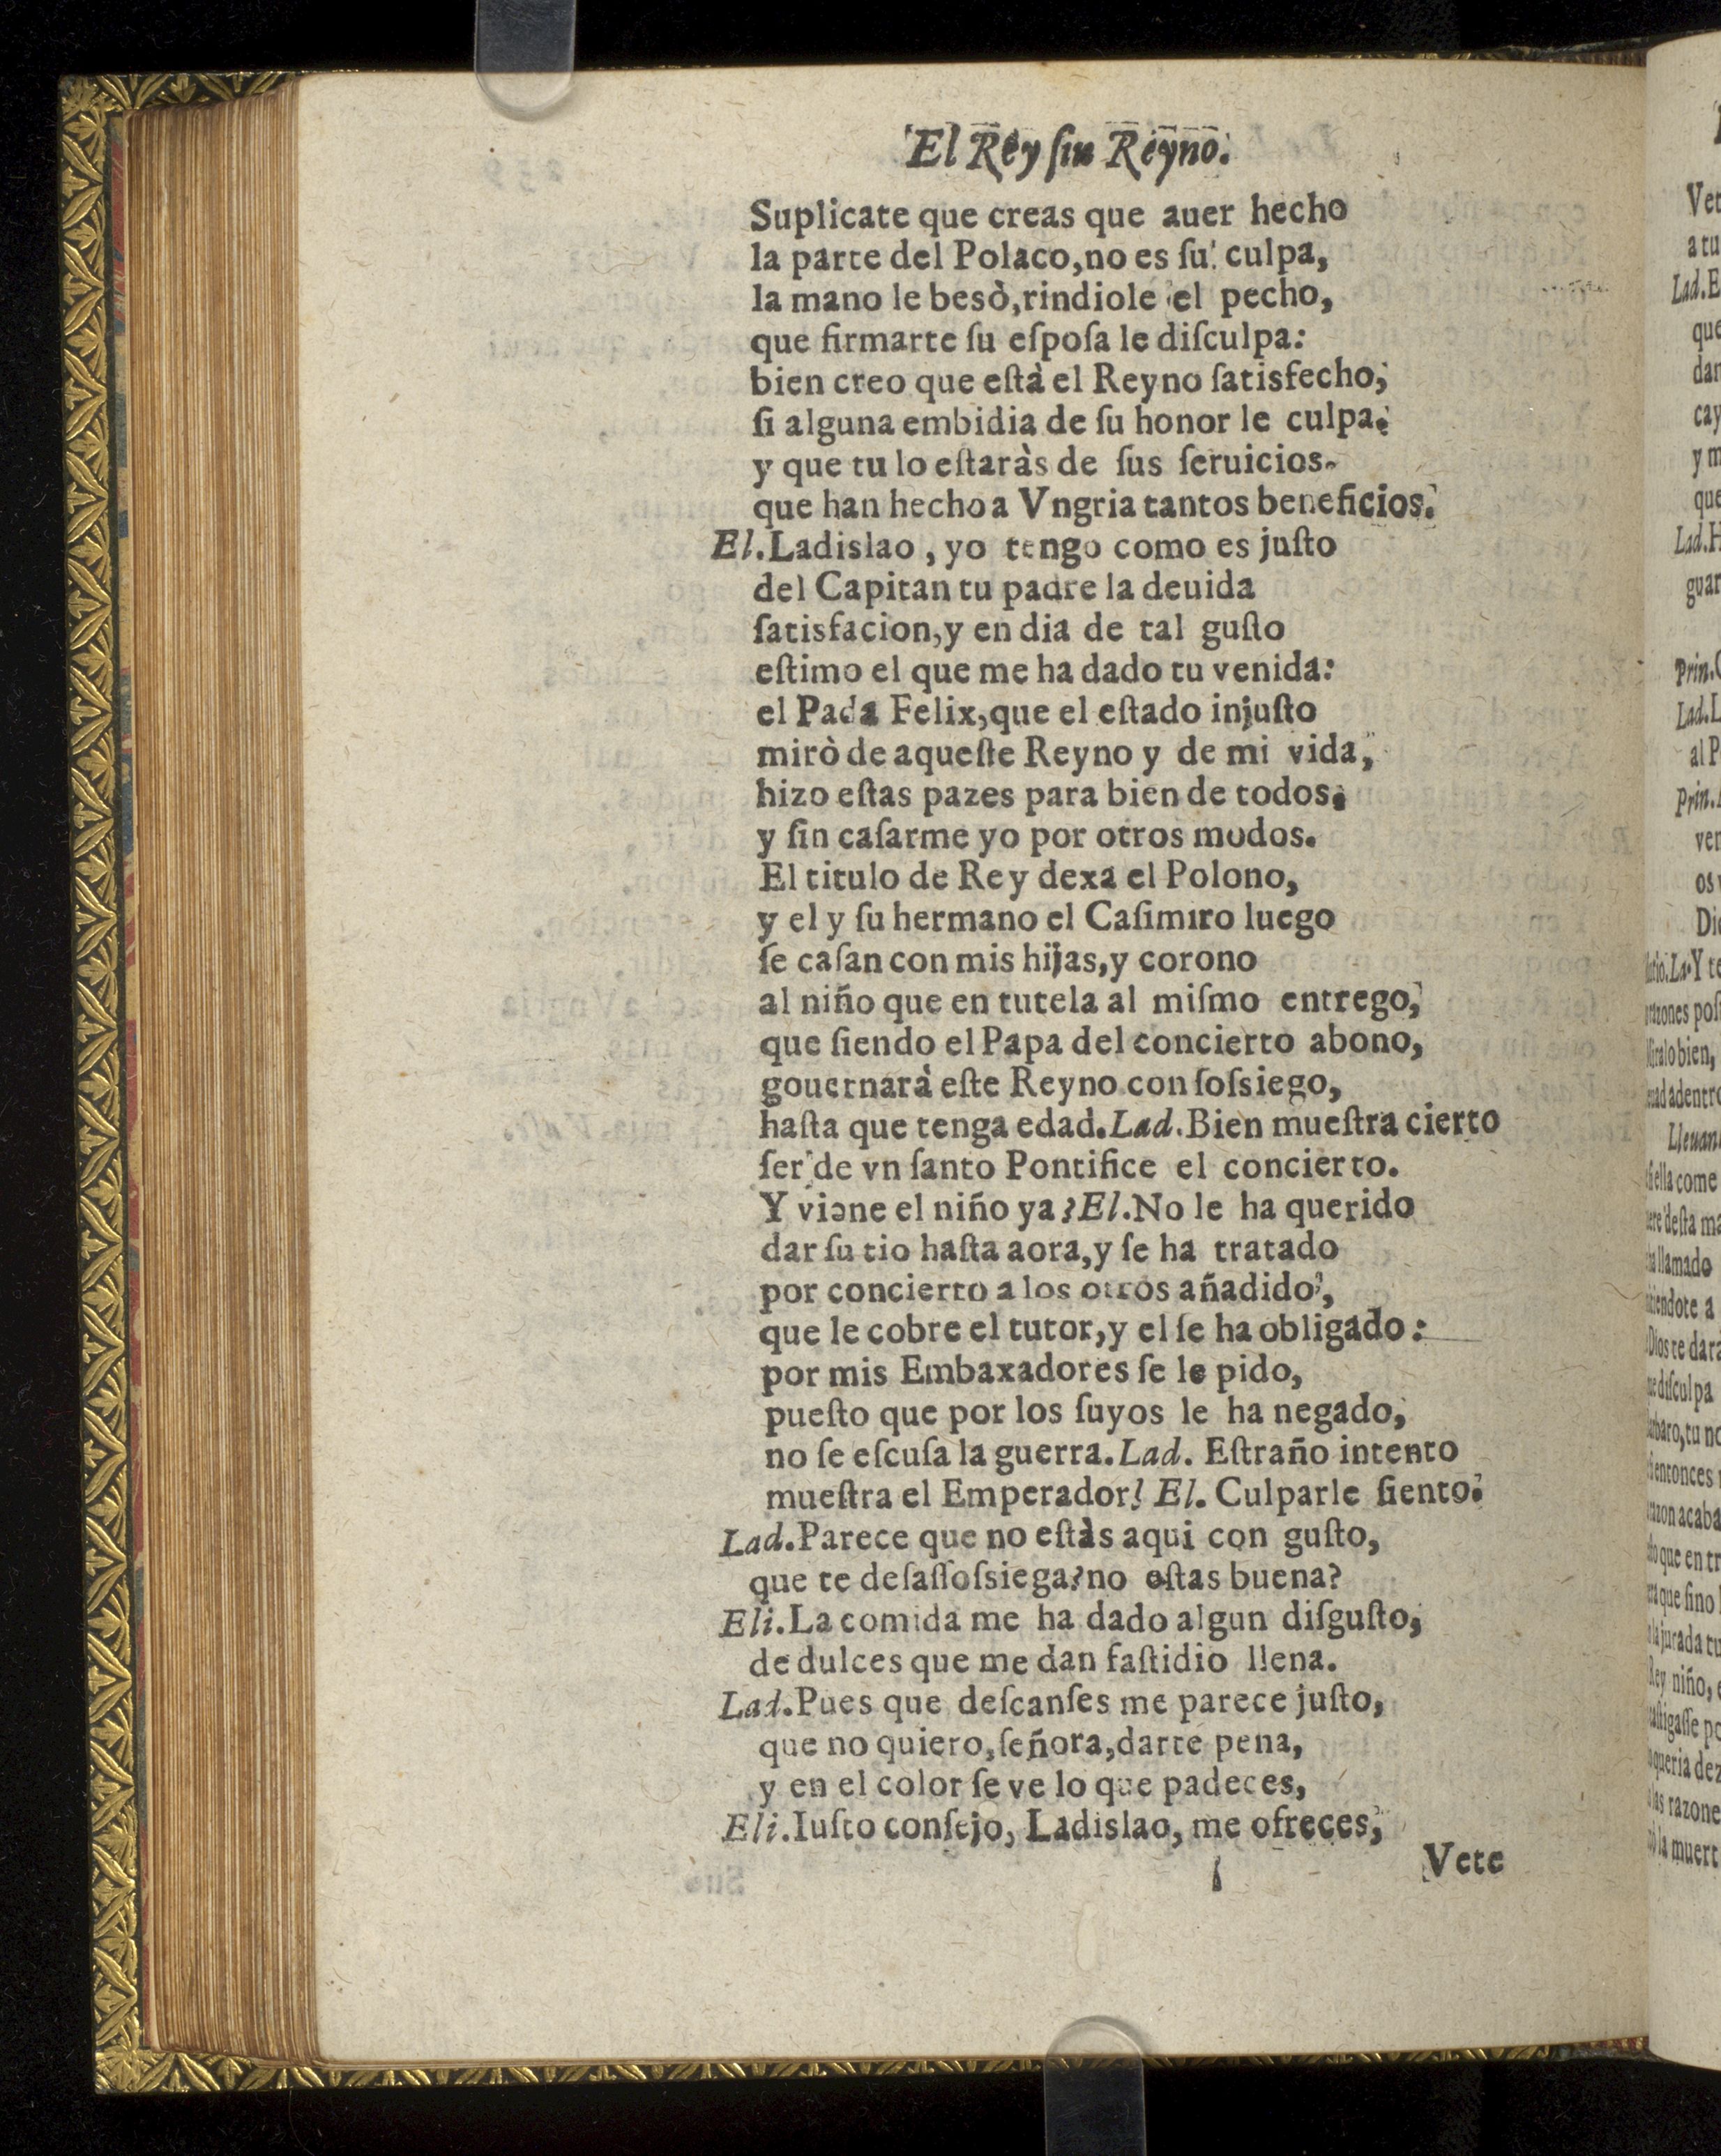 El Rey ſin Reyno.
Suplicate que creas que auer hecho
la parte del Polaco, no es ſu culpa,
la mano le besò, rindiole el pecho,
que firmarte ſu eſpoſa le diſculpa:
bien creo que eſtà el Reyno ſatisfecho,
ſi alguna embidia de ſu honor le culpa.
y que tu lo eſtaràs de ſus ſeruicios.
que han hecho a Vngria tantos beneficios.
El. Ladislao, yo tengo como es juſto
del Capitan tu padre la deuida
ſatisfacion, y en dia de tal guſto
eſtimo el que me ha dado tu venida:
el Pada Felix, que el eſtado injuſto
mirò de aqueſte Reyno y de mi vida,
hizo eſtas pazes para bien de todos,
y ſin caſarme yo por otros modos.
El titulo de Rey dexa el Polono,
y el y ſu hermano el Caſimiro luego
ſe caſan con mis hijas, y corono
al niño que en tutela al miſmo entrego,
que ſiendo el Papa del concierto abono,
gouernarà eſte Reyno con ſoſsiego,
haſta que tenga edad. Lad. Bien mueſtra cierto
ſer de vn ſanto Pontifice el concierto.
Y viene el niño ya? El. No le ha querido
dar ſu tio haſta aora, y ſe ha tratado
por concierto a los otros añadido,
que le cobre el tutor, y el ſe ha obligado:
por mis Embaxadores ſe le pido,
pueſto que por los ſuyos le ha negado,
no ſe eſcuſa la guerra. Lad. Eſtraño intento
mueſtra el Emperador! El. Culparle ſiento.
Lad. Parece que no eſtàs aqui con guſto,
que te deſaſſoſsiega? no eſtas buena?
Eli. La comida me ha dado algun diſguſto,
de dulces que me dan faſtidio llena.
Lad. Pues que deſcanſes me parece juſto,
que no quiero, ſeñora, darte pena,
y en el color ſe ve lo que padeces,
Eli. Iuſto conſejo, Ladislao, me ofreces,
Vete